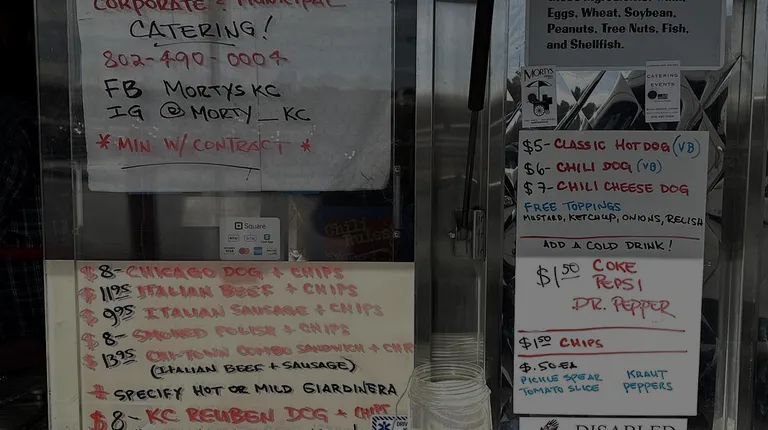 CORPORATE & MUNICIPAL
CATERING!
802-490-0004
FB MORTYS KC
IG @MORTY_KC
* MIN W/ CONTRACT *
Square
Chili
Rules
$8- CHICAGO DOG + CHIPS
$11.95 ITALIAN BEEF + CHIPS
$9.95 ITALIAN SAUSAGE + CHIPS
$8- SMOKED POLISH + CHIPS
$13.95 CHI-TOWN COMBO SANDWICH + CHIP
(ITALIAN BEEF + SAUSAGE)
* SPECIFY HOT OR MILD GIARDINERA
$8- KC REUBEN DOG + CHIPS
Eggs, Wheat, Soybean,
Peanuts, Tree Nuts, Fish,
and Shellfish.
MORTY'S
CATERING
EVENTS
$5- CLASSIC HOT DOG (VB)
$6- CHILI DOG (VB)
$7- CHILI CHEESE DOG
FREE TOPPINGS
MUSTARD, KETCHUP, ONIONS, RELISH
ADD A COLD DRINK!
$1.50 COKE
PEPSI
DR. PEPPER
$1.50 CHIPS
$.50 EA
PICKLE SPEAR KRAUT
TOMATO SLICE PEPPERS
DISABLED